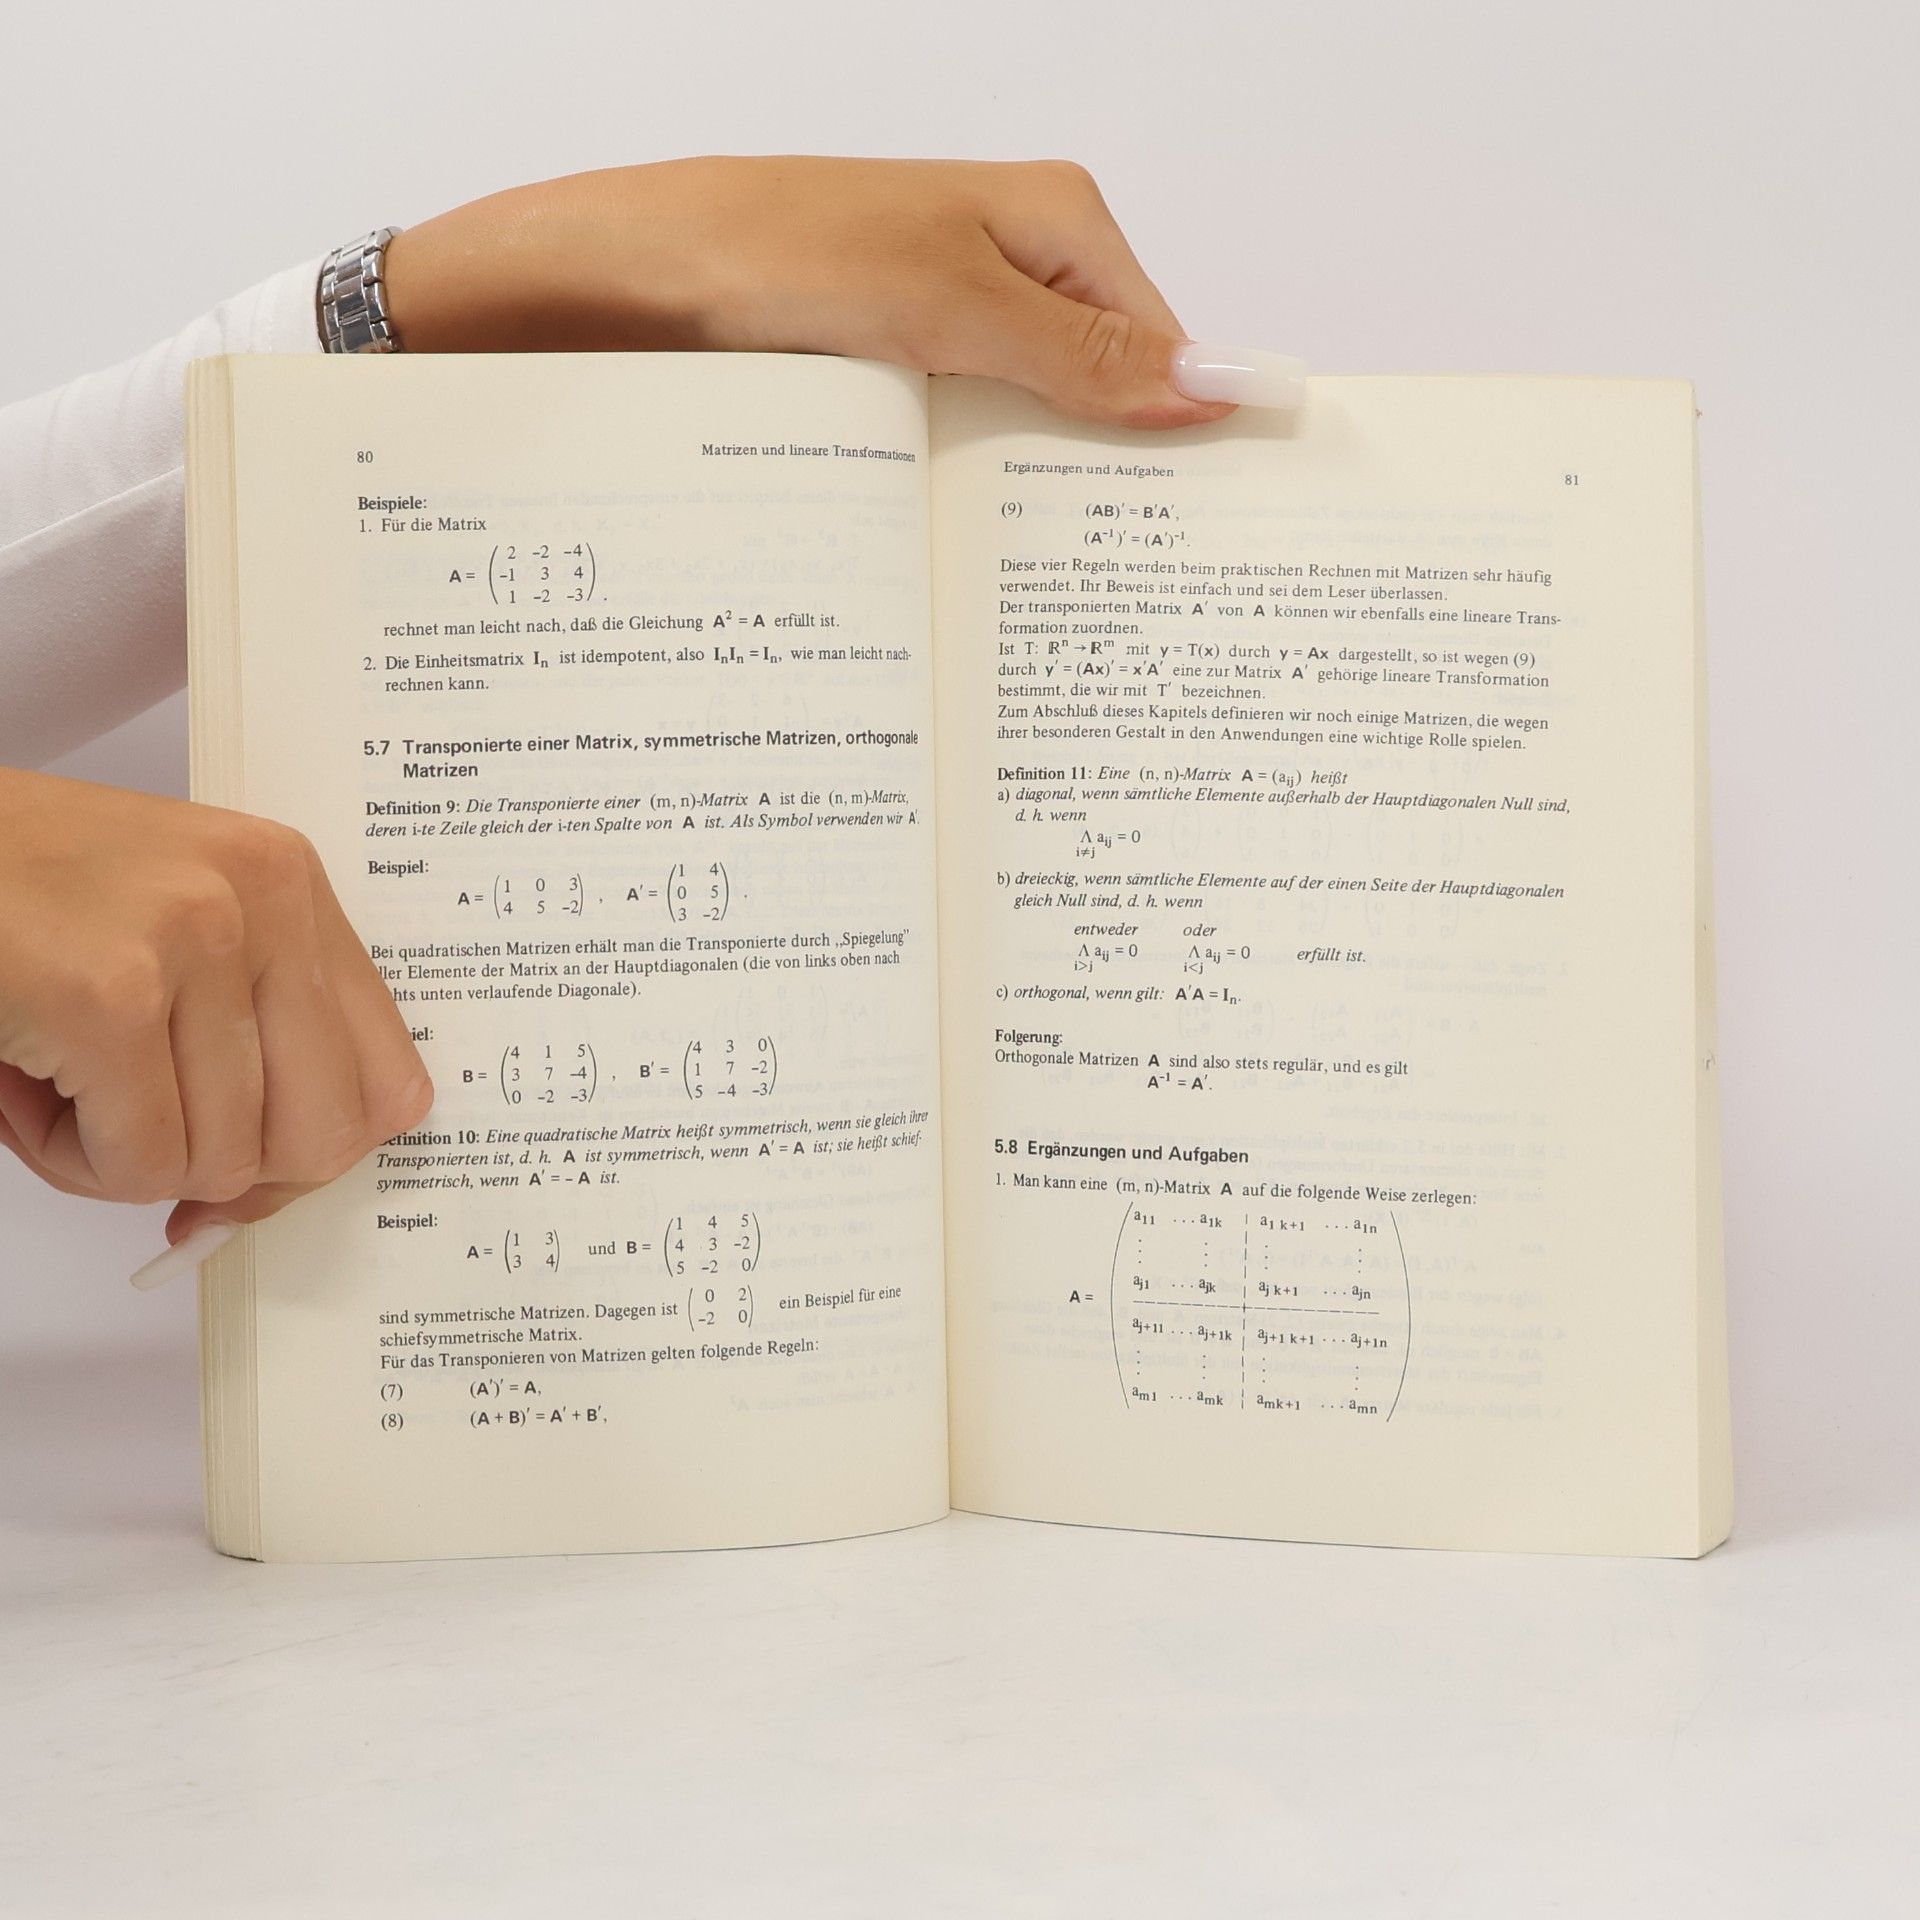 80 Matrizen und lineare Transformationen
Beispiele:
1. Für die Matrix
2 -2 -4
A = -1 3 4
1 -2 -3 .
rechnet man leicht nach, daß die Gleichung A² = A erfüllt ist.
2. Die Einheitsmatrix Iₙ ist idempotent, also IₙIₙ = Iₙ, wie man leicht nach-
rechnen kann.
5.7 Transponierte einer Matrix, symmetrische Matrizen, orthogonale
Matrizen
Definition 9: Die Transponierte einer (m, n)-Matrix A ist die (n, m)-Matrix,
deren i-te Zeile gleich der i-ten Spalte von A ist. Als Symbol verwenden wir A'.
Beispiel:
A = (1 0 3 / 4 5 -2) , A' = (1 4 / 0 5 / 3 -2) .
Bei quadratischen Matrizen erhält man die Transponierte durch „Spiegelung”
ller Elemente der Matrix an der Hauptdiagonalen (die von links oben nach
hts unten verlaufende Diagonale).
iel:
B = (4 1 5 / 3 7 -4 / 0 -2 -3) , B' = (4 3 0 / 1 7 -2 / 5 -4 -3)
efinition 10: Eine quadratische Matrix heißt symmetrisch, wenn sie gleich ihrer
Transponierten ist, d. h. A ist symmetrisch, wenn A' = A ist; sie heißt schief-
symmetrisch, wenn A' = – A ist.
Beispiel:
A = (1 3 / 3 4) und B = (1 4 5 / 4 3 -2 / 5 -2 0)
sind symmetrische Matrizen. Dagegen ist (0 2 / -2 0) ein Beispiel für eine
schiefsymmetrische Matrix.
Für das Transponieren von Matrizen gelten folgende Regeln:
(7) (A')' = A,
(8) (A + B)' = A' + B',
Ergänzungen und Aufgaben 81
(9) (AB)' = B'A',
(A⁻¹)' = (A')⁻¹.
Diese vier Regeln werden beim praktischen Rechnen mit Matrizen sehr häufig
verwendet. Ihr Beweis ist einfach und sei dem Leser überlassen.
Der transponierten Matrix A' von A können wir ebenfalls eine lineare Trans-
formation zuordnen.
Ist T: ℝⁿ → ℝᵐ mit y = T(x) durch y = Ax dargestellt, so ist wegen (9)
durch y' = (Ax)' = x'A' eine zur Matrix A' gehörige lineare Transformation
bestimmt, die wir mit T' bezeichnen.
Zum Abschluß dieses Kapitels definieren wir noch einige Matrizen, die wegen
ihrer besonderen Gestalt in den Anwendungen eine wichtige Rolle spielen.
Definition 11: Eine (n, n)-Matrix A = (aᵢⱼ) heißt
a) diagonal, wenn sämtliche Elemente außerhalb der Hauptdiagonalen Null sind,
d. h. wenn
Λ aᵢⱼ = 0
i≠j
b) dreieckig, wenn sämtliche Elemente auf der einen Seite der Hauptdiagonalen
gleich Null sind, d. h. wenn
entweder oder
Λ aᵢⱼ = 0 Λ aᵢⱼ = 0 erfüllt ist.
i>j i<j
c) orthogonal, wenn gilt: A'A = Iₙ.
Folgerung:
Orthogonale Matrizen A sind also stets regulär, und es gilt
A⁻¹ = A'.
5.8 Ergänzungen und Aufgaben
1. Man kann eine (m, n)-Matrix A auf die folgende Weise zerlegen:
a11 ... a1k | a1 k+1 ... a1n
A = aj1 ... ajk | aj k+1 ... ajn
aj+11 ... aj+1k | aj+1 k+1 ... aj+1n
am1 ... amk | amk+1 ... amn